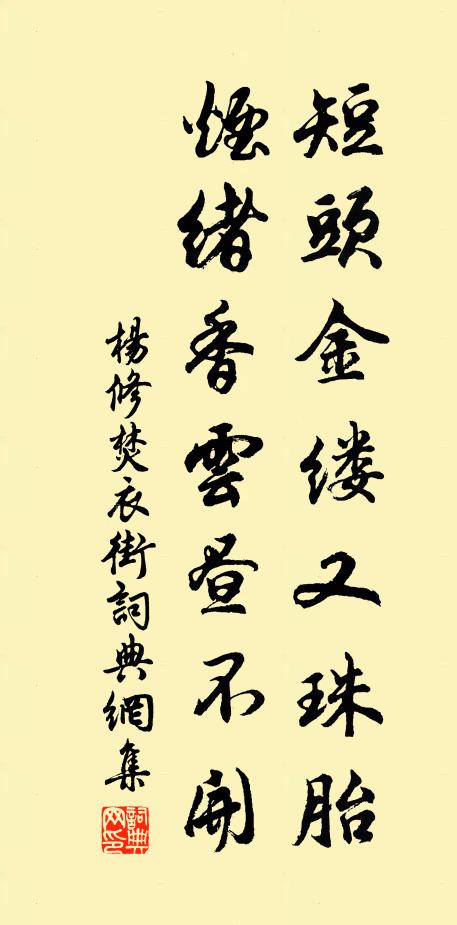 短頭金缕又珠胎
煙緒香雲昼不開
楊修焚衣街詞典網集
詞典網印